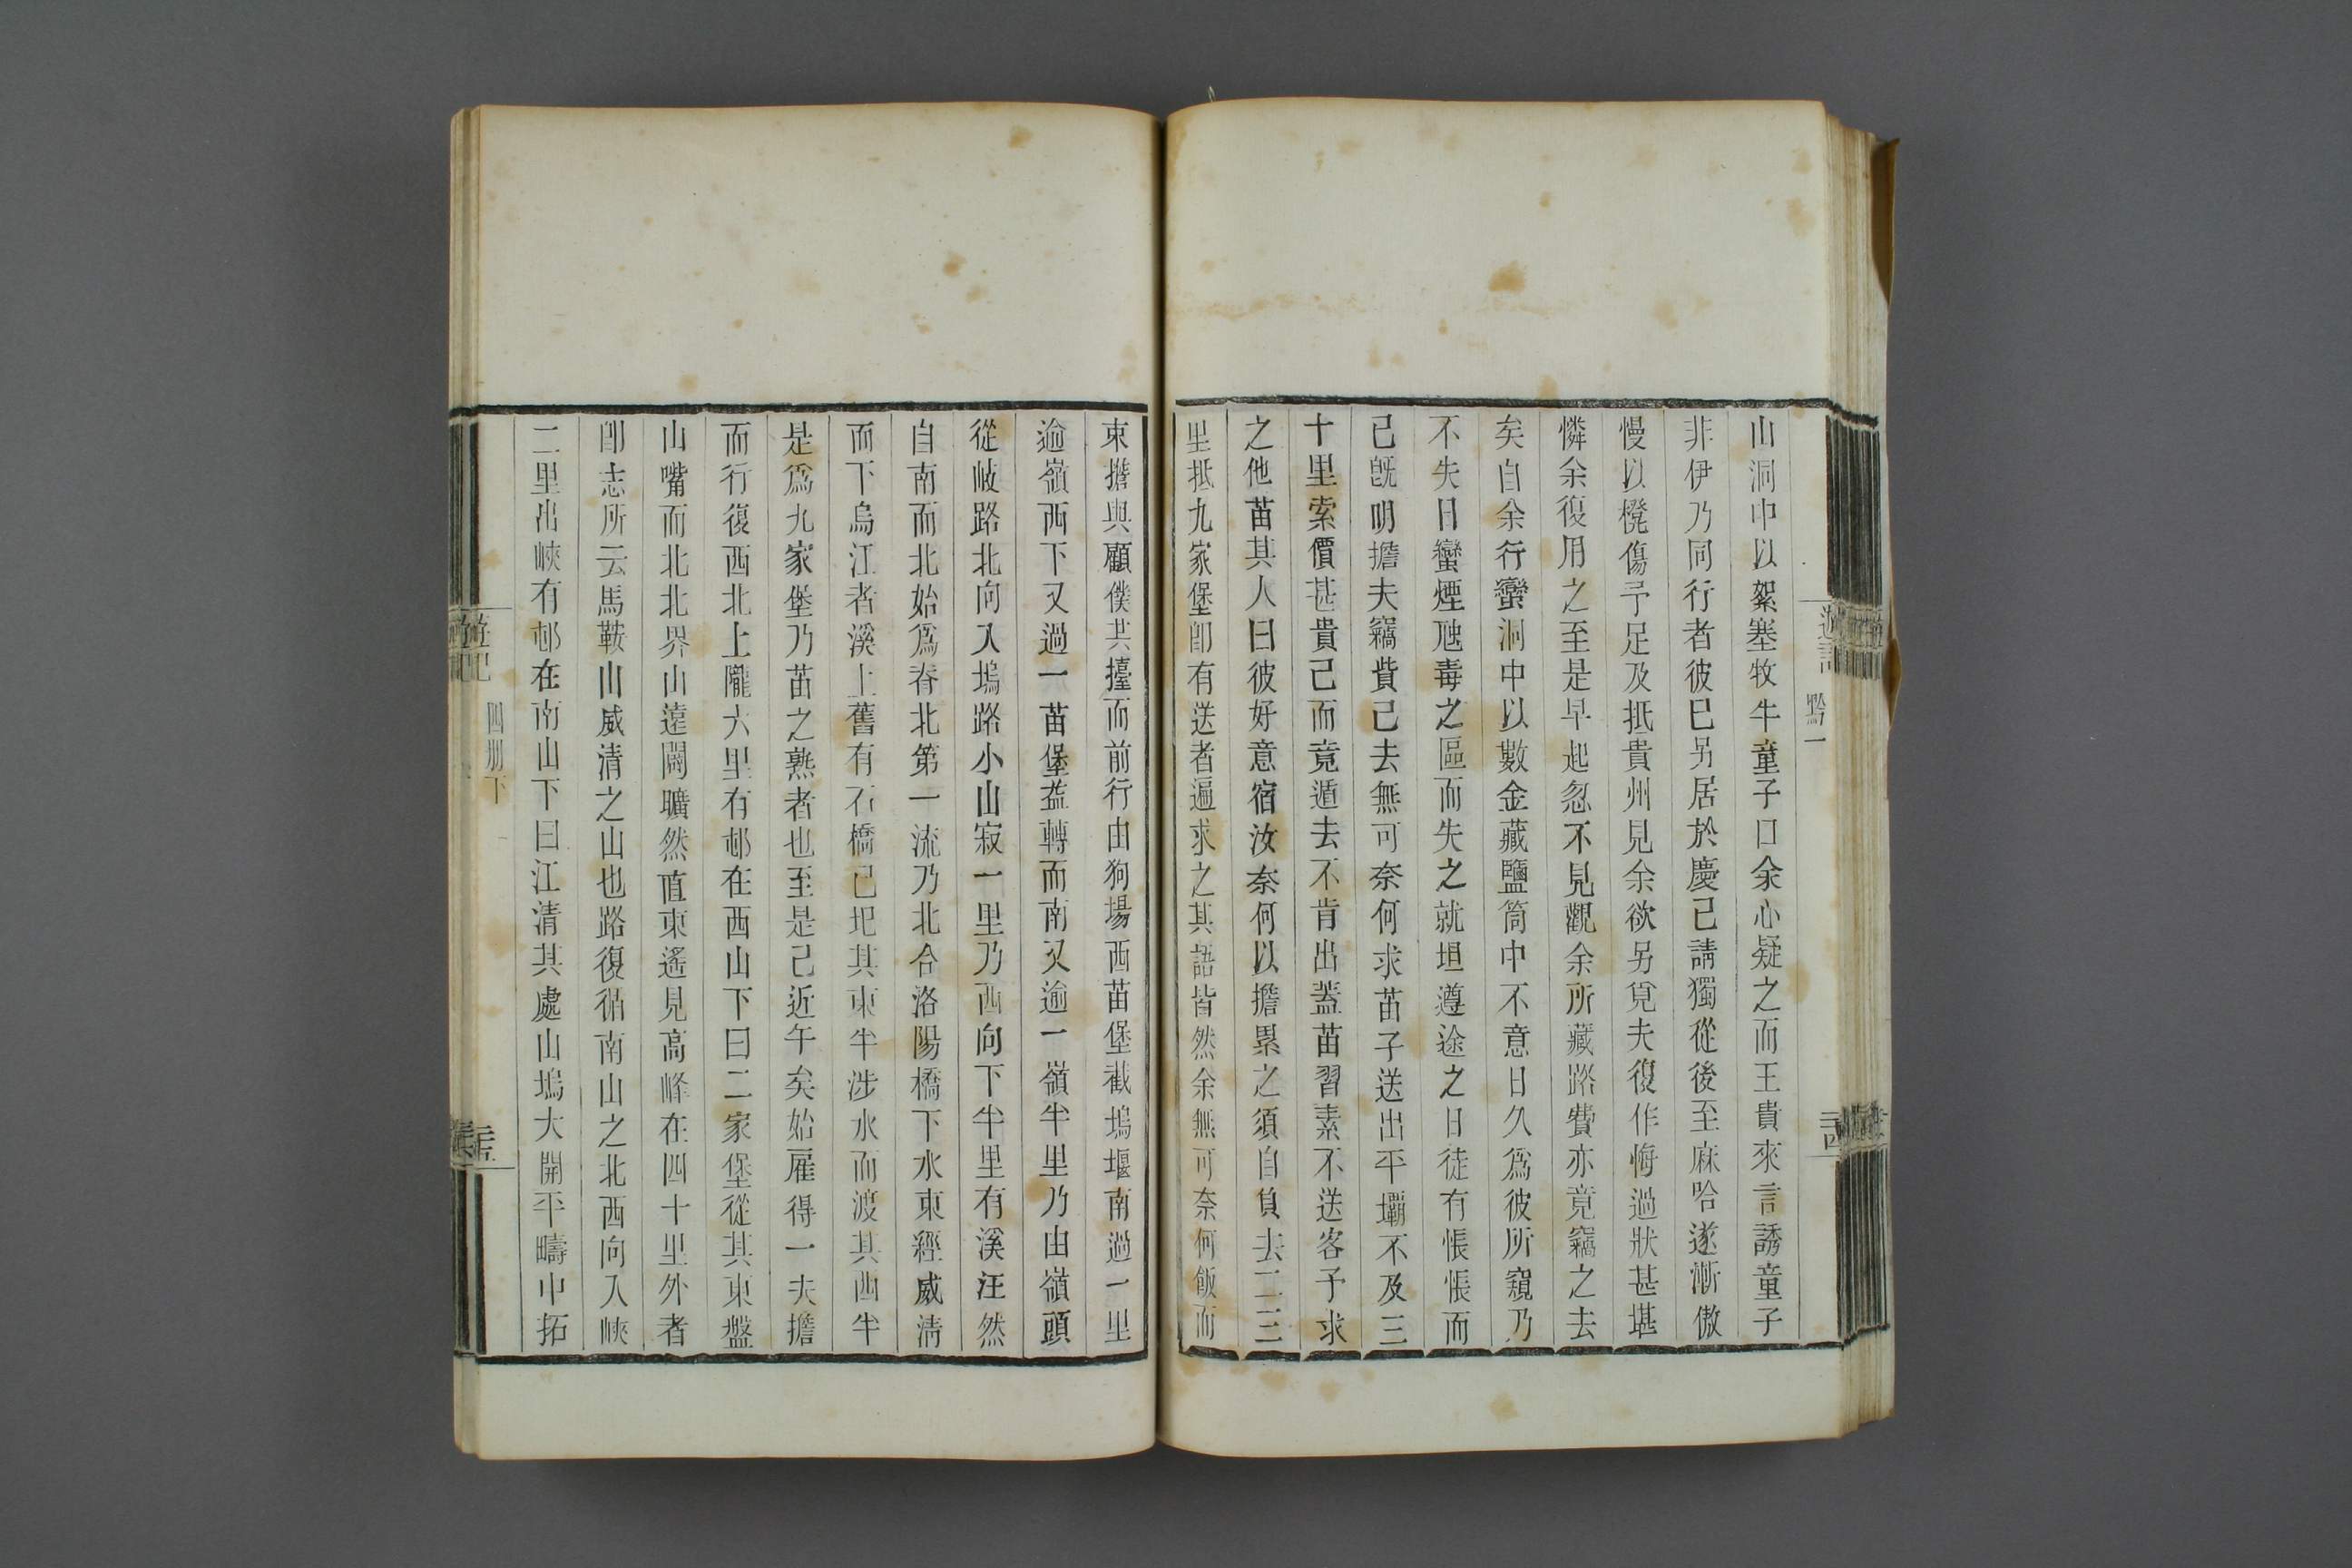 遊記
黔一
三四
山洞中以絮塞牧牛童子口余心疑之而王貴來言誘童子
非伊乃同行者彼巳另居於慶己請獨從後至麻哈遂漸傲
慢以櫈傷予足及抵貴州見余欲另覓夫復作悔過狀甚堪
憐余復用之至是早起忽不見觀余所藏路費亦竟竊之去
矣自余行蠻洞中以數金藏鹽筒中不意日久爲彼所窺乃
不失日蠻煙虺毒之區而失之就坦遵途之日徒有悵悵而
己旣明擔夫竊貲己去無可奈何求苗子送出平壩不及三
十里索價甚貴己而竟遁去不肯出蓋苗習素不送客予求
之他苗其人曰彼好意宿汝奈何以擔累之須自負去二三
里抵九家堡卽有送者遍求之其語皆然余無可奈何飯而
束擔與顧僕共擡而前行由狗場西苗堡截塢堰南過一里
逾嶺西下又過一苗堡葢轉而南又逾一嶺半里乃由嶺頭
從岐路北向入塢路小山寂一里乃西向下半里有溪汪然
自南而北始爲脊北第一流乃北合洛陽橋下水東經威淸
而下烏江者溪上舊有石橋已圯其東半涉水而渡其西半
是爲九家堡乃苗之熟者也至是己近午矣始雇得一夫擔
而行復西北上隴六里有邨在西山下曰二家堡從其東盤
山嘴而北北界山遠闢曠然直東遙見高峰在四十里外者
卽志所云馬鞍山威清之山也路復循南山之北西向入峽
二里出峽有邨在南山下曰江清其處山塢大開平疇中拓
遊記
四册下